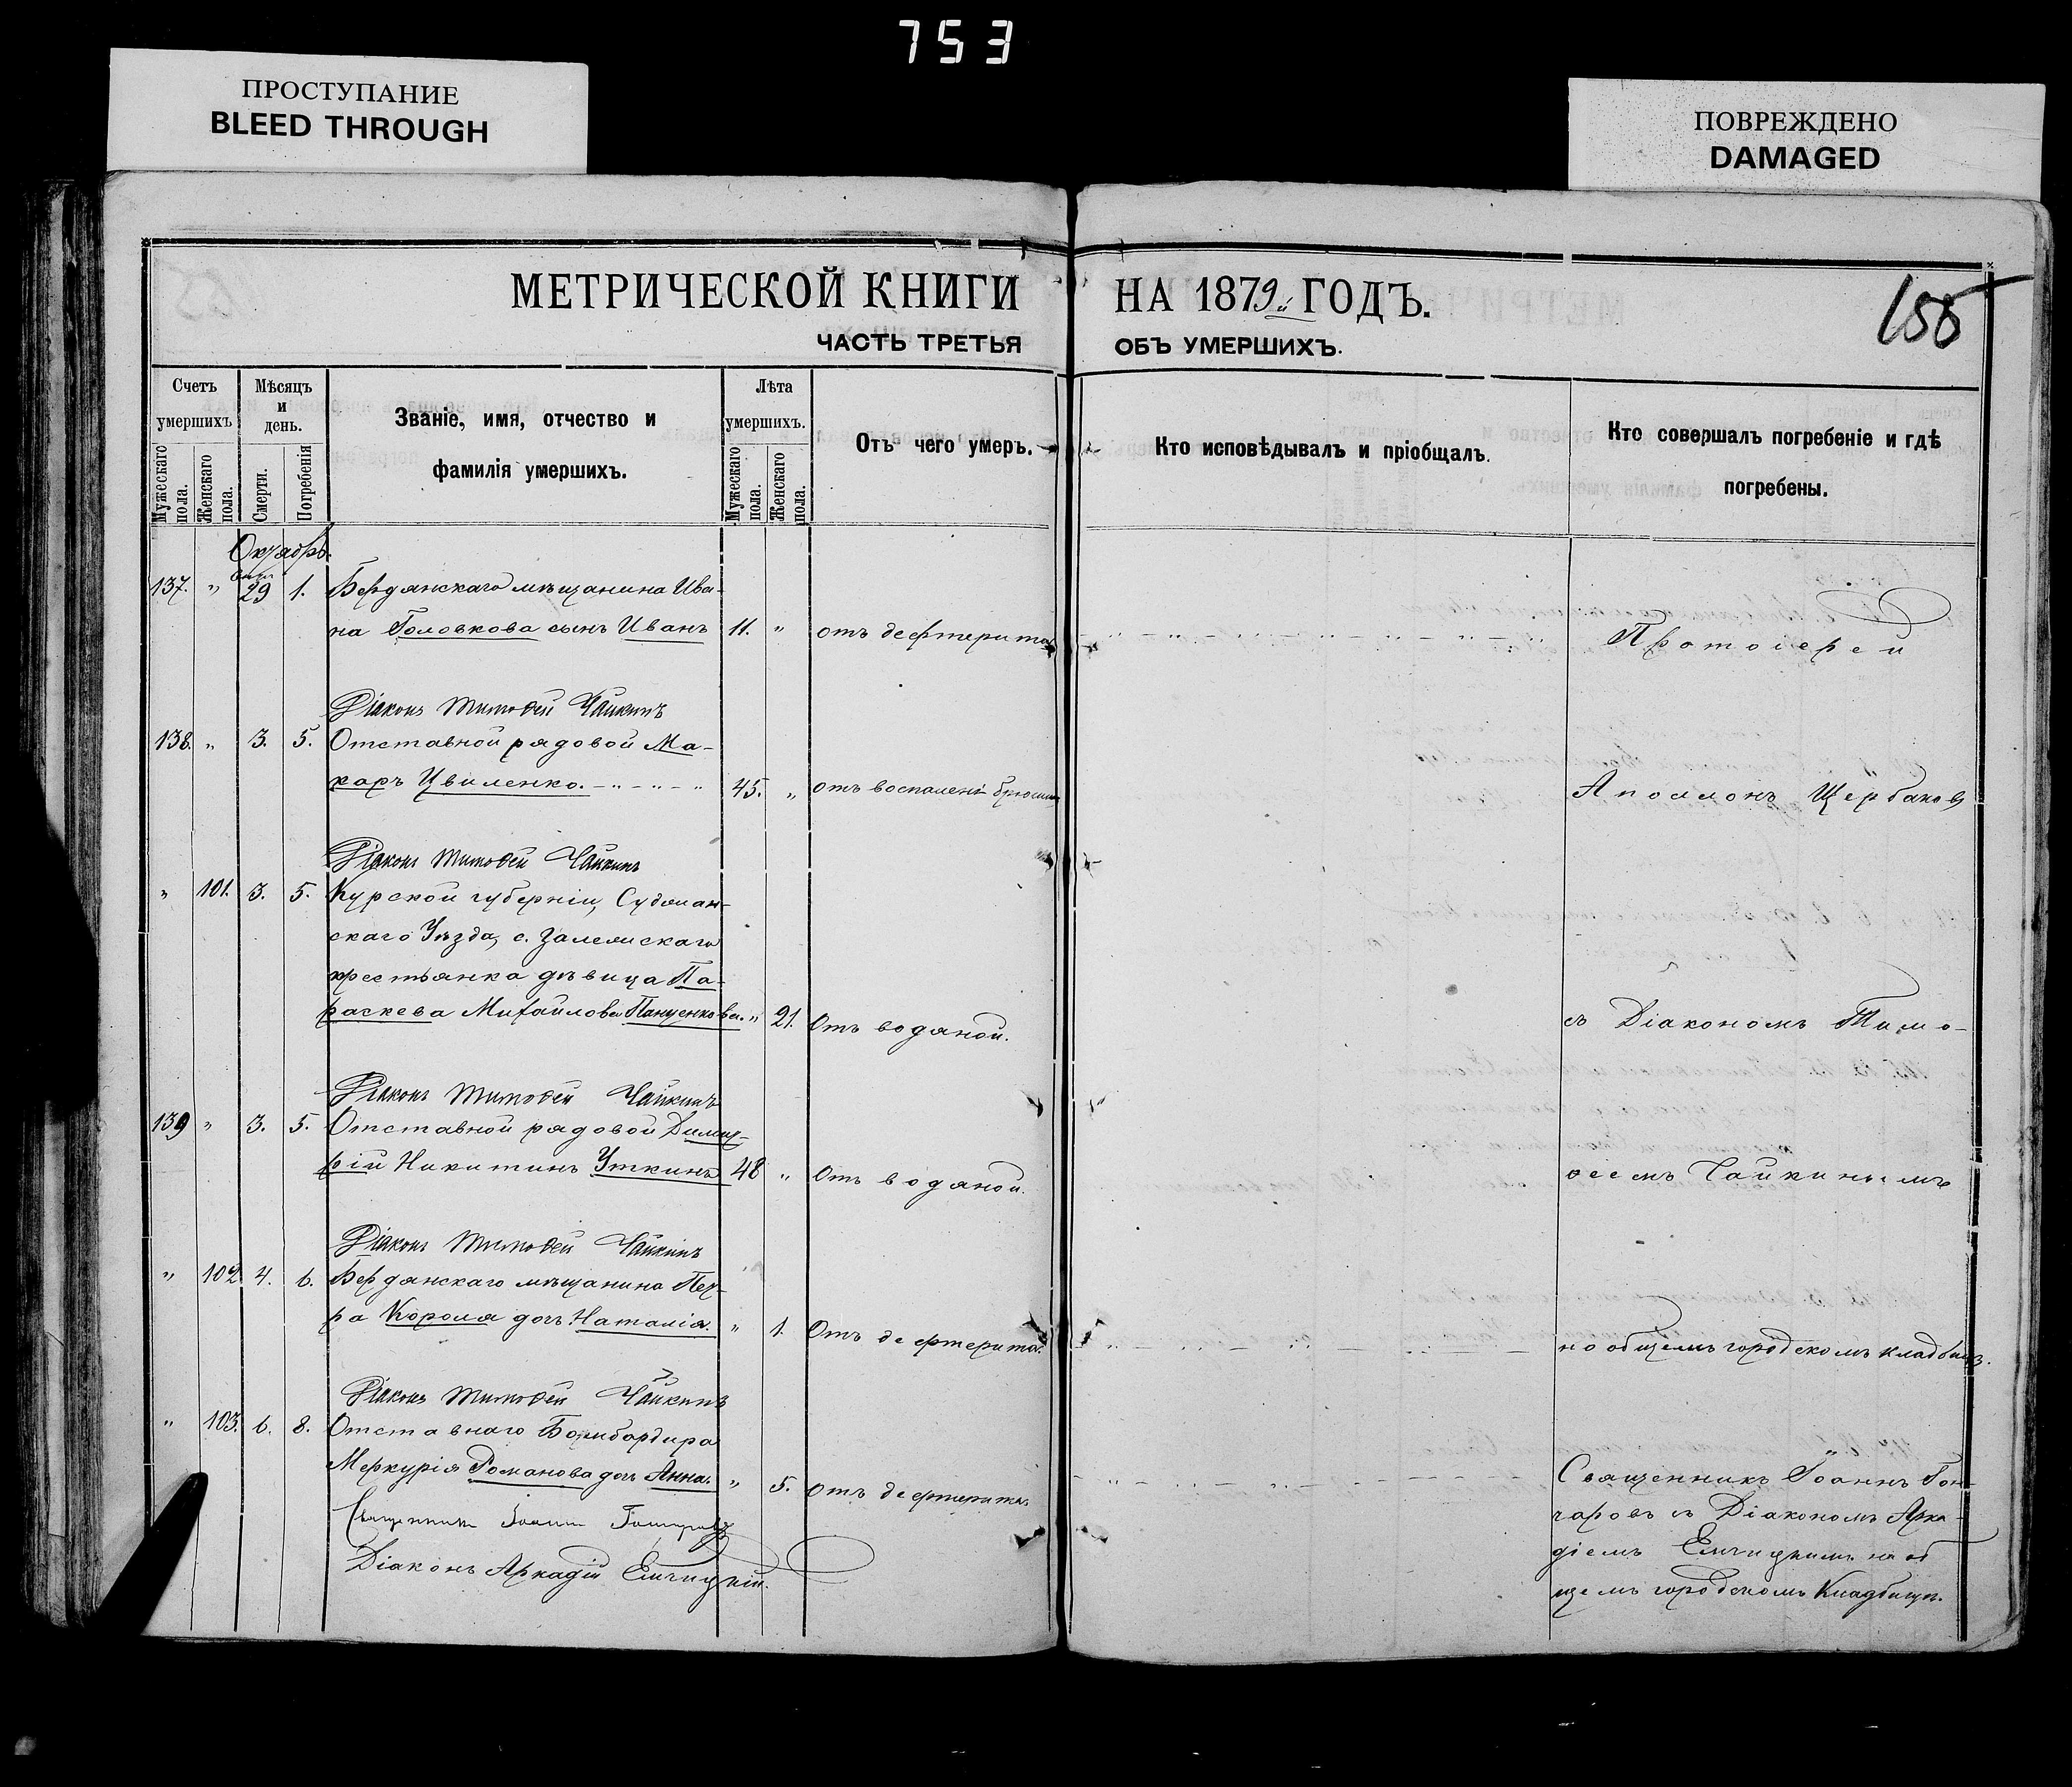 753
ПРОСТУПАНИЕ
BLEED THROUGH
ПОВРЕЖДЕНО
DAMAGED
МЕТРИЧЕСКОЙ КНИГИ НА 1879й ГОДЪ.
155
ЧАСТЬ ТРЕТЬЯ ОБЪ УМЕРШИХЪ.
Счетъ умершихъ
Мужескаго пола.
Женскаго пола.
Мѣсяцъ и день.
Смерти.
Погребенія
Званіе, имя, отчество и
фамилія умершихъ.
Лѣта умершихъ.
Мужескаго пола.
Женскаго пола.
Отъ чего умеръ.
Кто исповѣдывалъ и пріобщалъ.
Кто совершалъ погребеніе и гдѣ
погребены.
Октябрь.
137. " 29 1. Бердянскаго мѣщанина Ива-
на Головкова сынъ Иванъ 11. " отъ дефтерита
Протоіерей
Діаконъ Тимоѳей Чайкинъ
138. " 3. 5. Отставной рядовой Ма-
каръ Цвиленко. 45. " отъ воспалені брюшин
Аполлонъ Щербаковъ
Діаконъ Тимоѳей Чайкинъ
" 101. 3. 5. Курской губерніи, Суджан-
скаго Уѣзда, с.
крестьянка дѣвица Па-
раскева Михайлова " 21. Отъ водяной.
съ Діакономъ Тимо-
Діаконъ Тимоѳей Чайкинъ
139 " 3. 5. Отставной рядовой Димит-
рій Никитинъ Уткинъ 48 " Отъ водяной.
ѳеемъ Чайкинымъ
Діаконъ Тимоѳей Чайкинъ
" 102 4. 6. Бердянскаго мѣщанина Пет-
ра Короля дочь Наталія. " 1. Отъ дефтерита.
на общемъ городскомъ кладбищѣ.
Діаконъ Тимоѳей Чайкинъ
" 103. 6. 8. Отставнаго Бомбардира
Меркурія Романова дочь Анна. " 5. Отъ дефтерита.
Священникъ Іоаннъ Гон-
Священникъ Іоаннъ Гончаровъ
чаровъ съ Діакономъ Арка-
Діаконъ Аркадій Емчицкій.
діемъ Емчицкимъ на об
щемъ городскомъ Кладбищѣ.